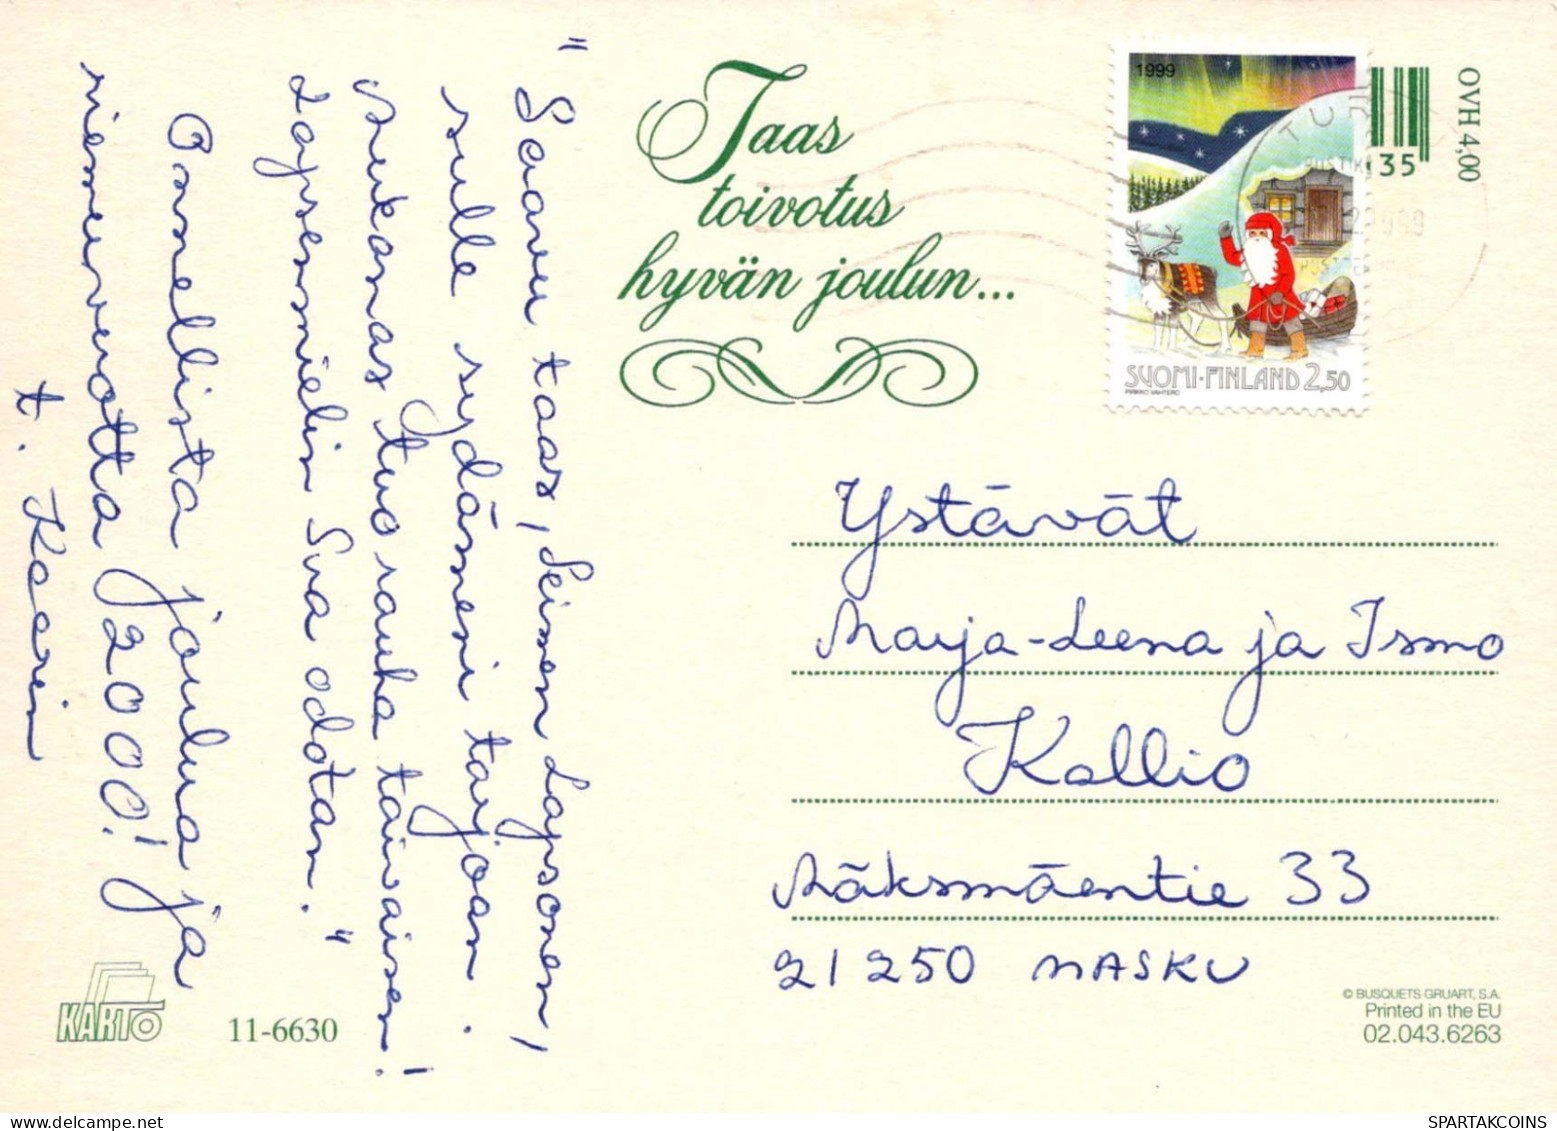 "Saavu taas, Seimen Lapsonen,
sulle sydämeni tarjoan.
Mukanas tuo rauha taivainen!
Lapsenmielin Sua odotan."
Onnellista joulua ja
riemuvuotta 2000!
t. Kaarin
Taas
toivotus
hyvän joulun...
1999
SUOMI-FINLAND 2,50
PIRKKO VAHTERO
35
OVH 4,00
Ystävät
Marja-Leena ja Ismo
Kallio
Mäksmäentie 33
21250 MASKU
KARTO
11-6630
© BUSQUETS GRUART, S.A.
Printed in the EU
02.043.6263
SPARTAKCOINS